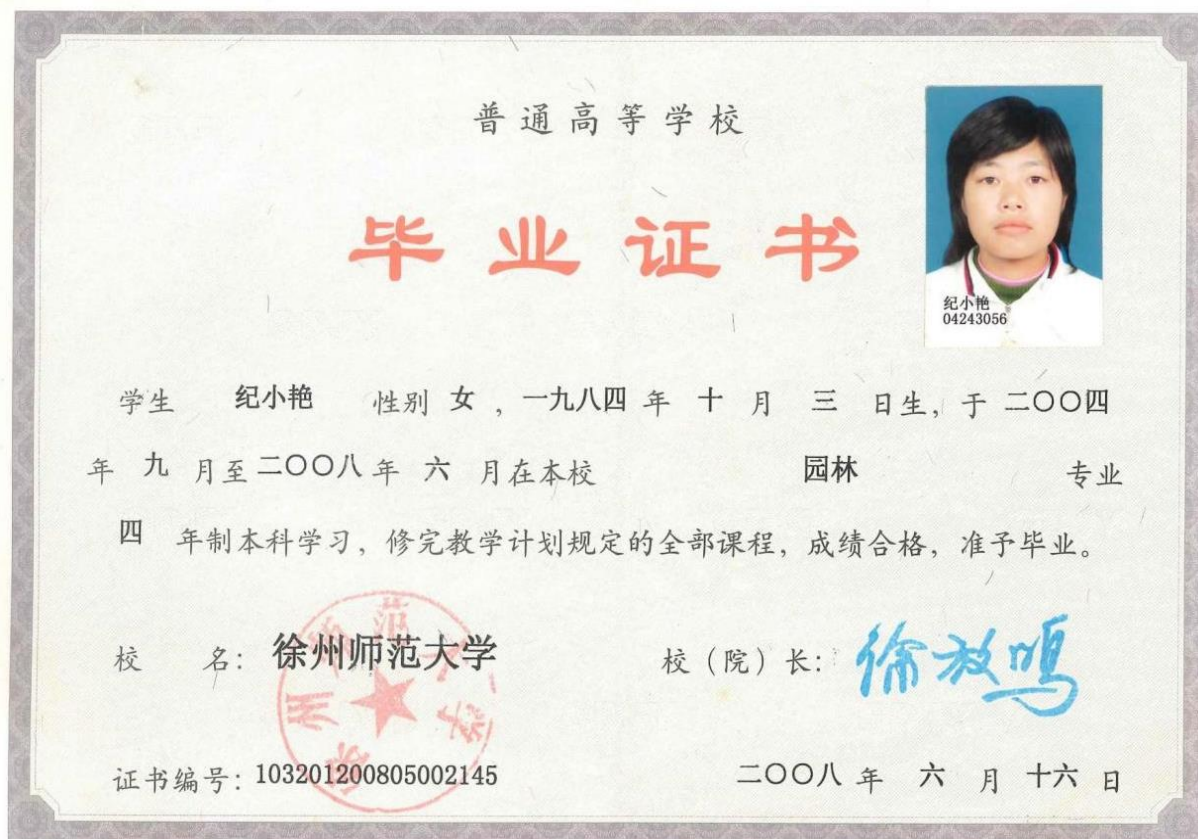 普通高等学校
毕业证书
纪小艳
04243056
学生 纪小艳 性别 女 ，一九八四 年 十 月 三 日生，于 二〇〇四
年 九 月至 二〇〇八 年 六 月在本校 园林 专业
四 年制本科学习，修完教学计划规定的全部课程，成绩合格，准予毕业。
校 名：徐州师范大学 校（院）长：徐放鸣
徐州师范大学
证书编号：103201200805002145 二〇〇八 年 六 月 十六 日